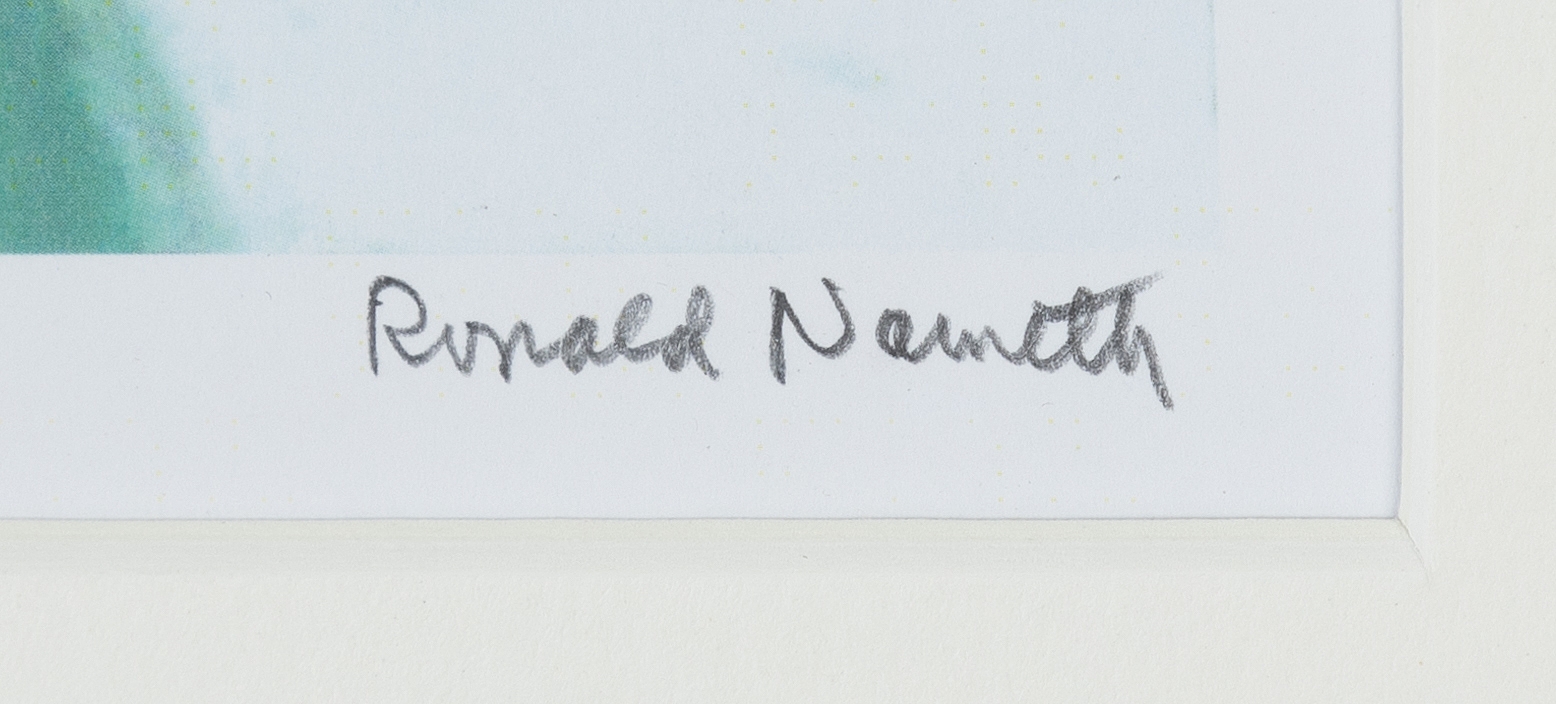 Ronald Nameth